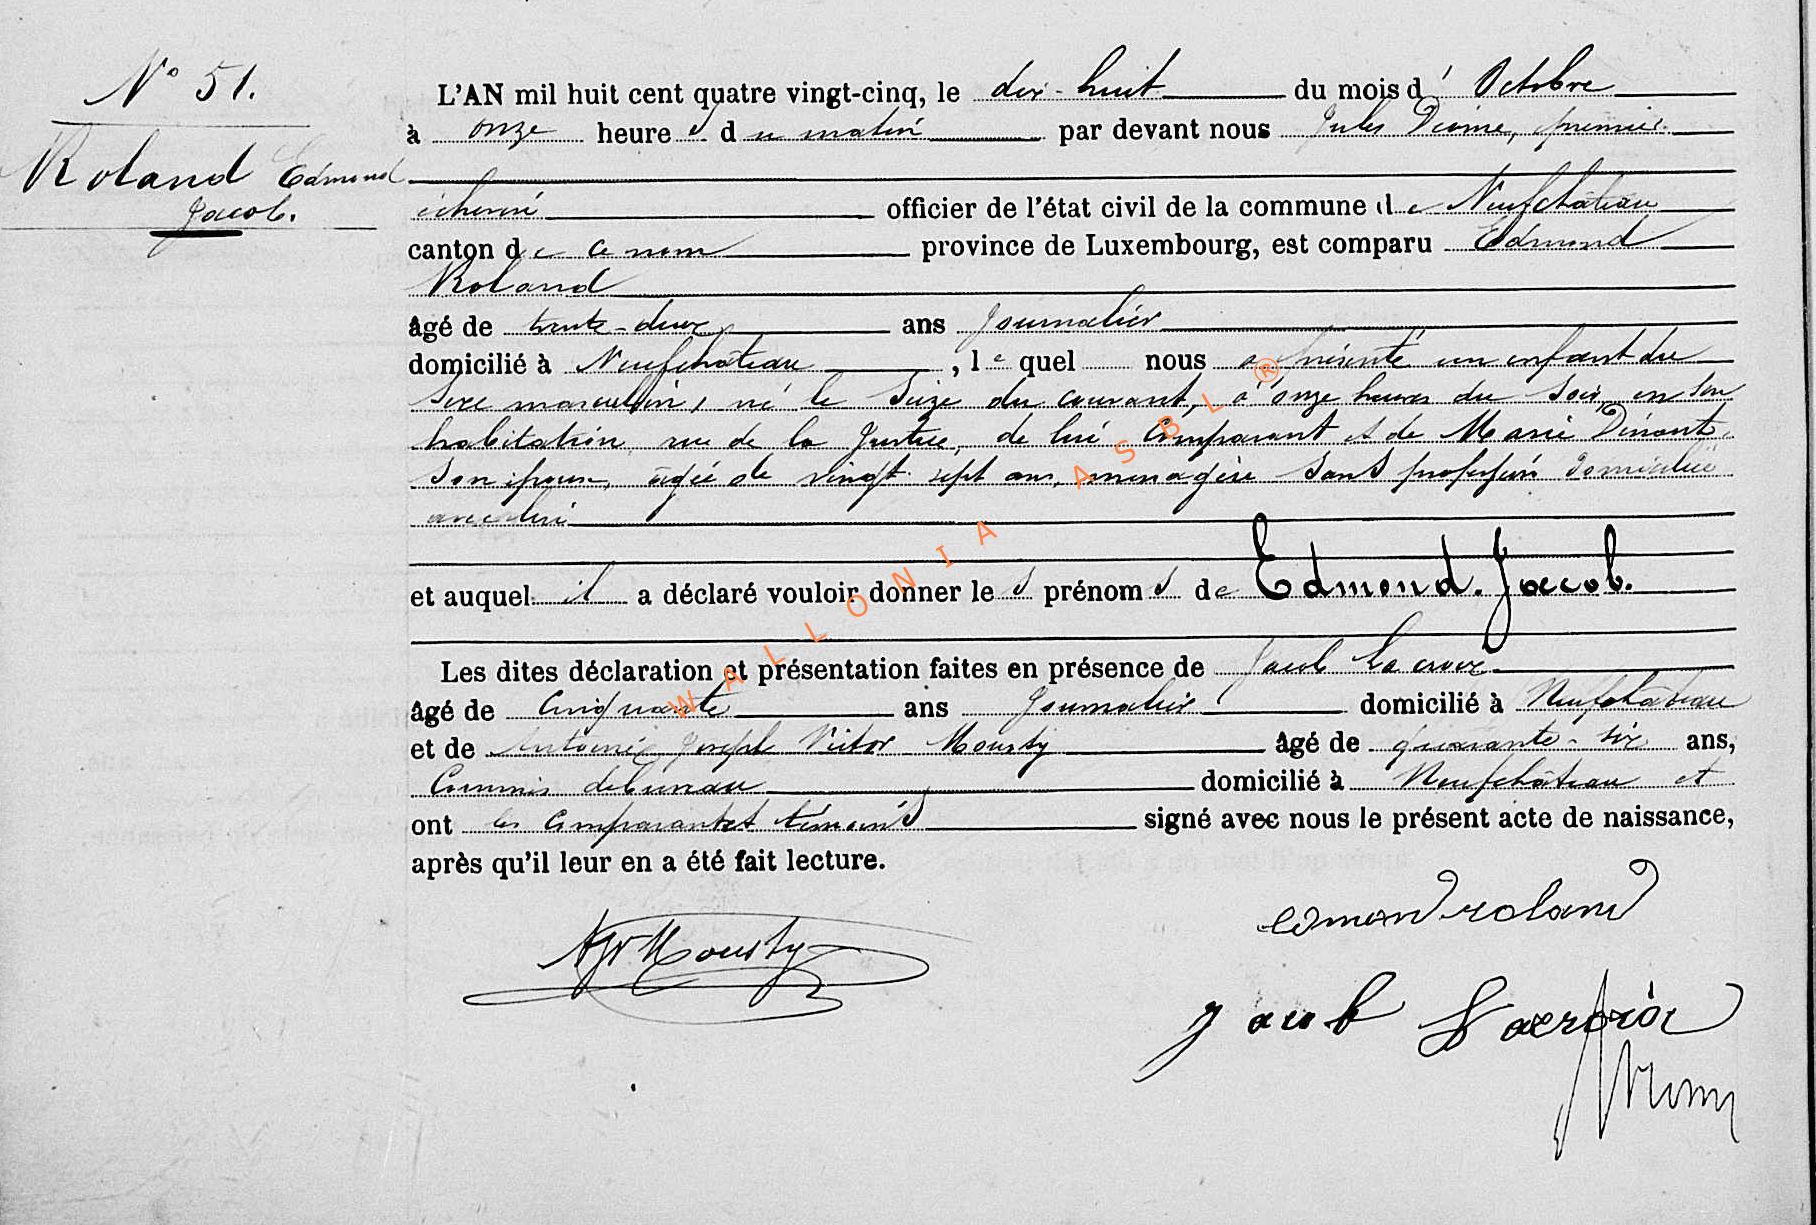 N° 51.
Roland Edmond
Jacob.
L'AN mil huit cent quatre vingt-cinq, le dix-huit du mois d'Octobre
à onze heures du matin par devant nous Jules premier
échevin officier de l'état civil de la commune de Neufchâteau
canton de ce nom province de Luxembourg, est comparu Edmond
Roland
âgé de trente-deux ans Journalier
domicilié à Neufchâteau, lequel nous a présenté un enfant du
Sexe masculin, né le Seize du courant, à onze heures du Soir, en son
habitation, rue de la Justice, de lui Comparant et de Marie Dinant
Son épouse, âgée de vingt sept ans, ménagère Sans profession domiciliée
avec lui
et auquel il a déclaré vouloir donner les prénoms de Edmond. Jacob.
Les dites déclaration et présentation faites en présence de Jacob Lacroix
âgé de Cinquante ans Journalier domicilié à Neufchâteau
et de Antoine Joseph Victor Mousty âgé de quarante-six ans,
Commis de bureau domicilié à Neufchâteau et
ont les comparant et témoins signé avec nous le présent acte de naissance,
après qu'il leur en a été fait lecture.
edmond roland
AJV Mousty
Jacob Lacroix
WALLONIA ASBL ®